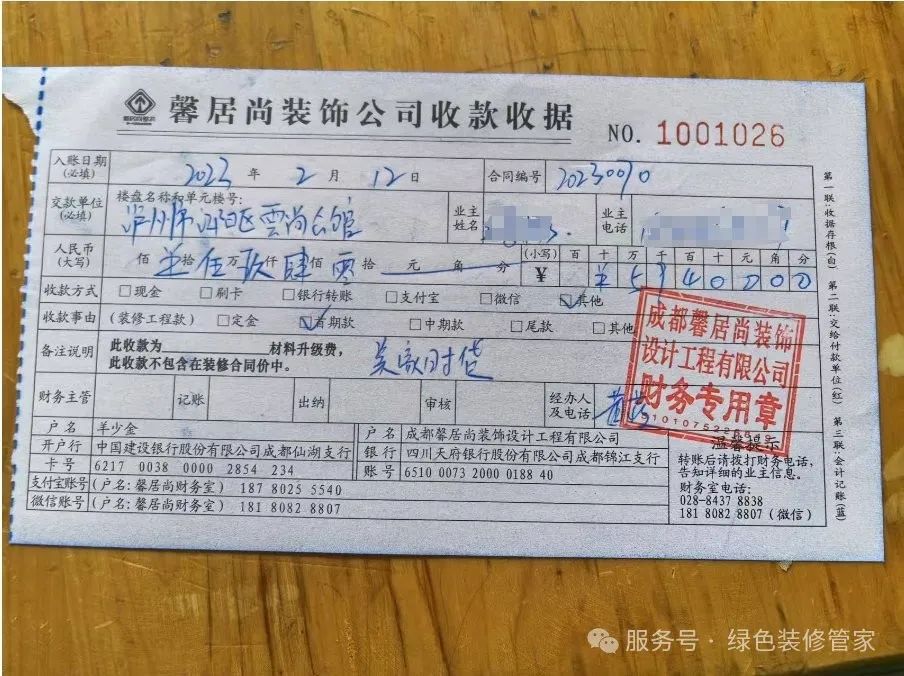 馨居尚装饰公司收款收据
NO. 1001026
入账日期(必填) 2023 年 2 月 12 日 合同编号 20230090
交款单位(必填) 楼盘名称和单元楼号: 泸州市江阳区雲尚公館 业主姓名 业主电话
人民币(大写) 佰 拾 伍 万 玖 仟 肆 佰 零 拾 元 角 分 (小写) ¥ 百 十 万 千 百 十 元 角 分
¥ 5 9 4 0 0 0 0
收款方式 □现金 □刷卡 □银行转账 □支付宝 □微信 ☑其他
收款事由 (装修工程款) □定金 ☑首期款 □中期款 □尾款 □其他
备注说明 此收款为 材料升级费,
此收款不包含在装修合同价中。
财务主管 记账 出纳 审核 经办人及电话
成都馨居尚装饰
设计工程有限公司
财务专用章
户 名 羊少金
开户行 中国建设银行股份有限公司成都仙湖支行
卡 号 6217 0038 0000 2854 234
户 名 成都馨居尚装饰设计工程有限公司
银 行 四川天府银行股份有限公司成都锦江支行
账 号 6510 0073 2000 0188 40
支付宝账号 (户名: 馨居尚财务室) 187 8025 5540
微信账号 (户名: 馨居尚财务室) 181 8082 8807
温馨提示
转账后请拨打财务电话,
告知详细的业主信息。
财务室电话:
028-8437 8838
181 8082 8807 (微信)
第一联:收据存根(白) 第二联:交给付款单位(红) 第三联:会计记账(蓝)
服务号 · 绿色装修管家